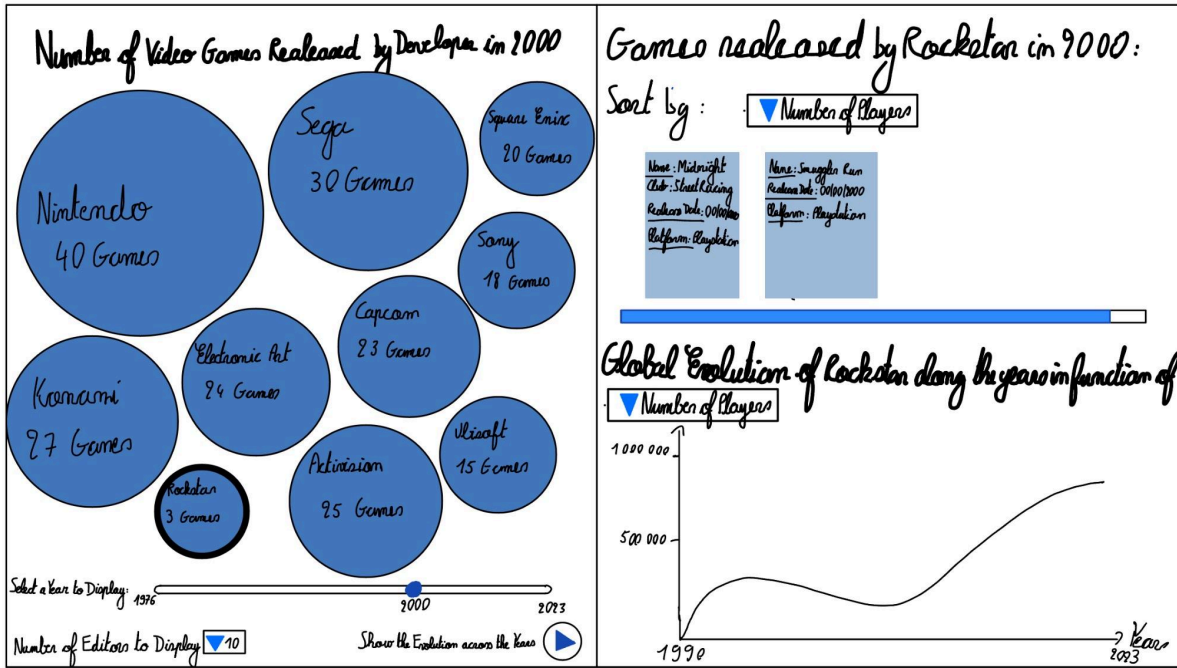 Number of Video Games Realeased by Developer in 2000
Nintendo
40 Games
Sega
30 Games
Square Enix
20 Games
Sony
18 Games
Capcom
23 Games
Electronic Art
24 Games
Konami
27 Games
Ubisoft
15 Games
Activision
25 Games
Rockstar
3 Games
Select a Year to Display:
1976
2000
2023
Number of Editors to Display
10
Show the Evolution across the Years
Games realeased by Rockstar in 2000:
Sort by:
Number of Players
Name: Midnight
Club: Street Racing
Realease Date: 00/00/2000
Platform: Playstation
Name: Smuggler Run
Realease Date: 00/00/2000
Platform: Playstation
Global Evolution of Rockstar along the years in function of
Number of Players
1 000 000
500 000
1990
Years
2023